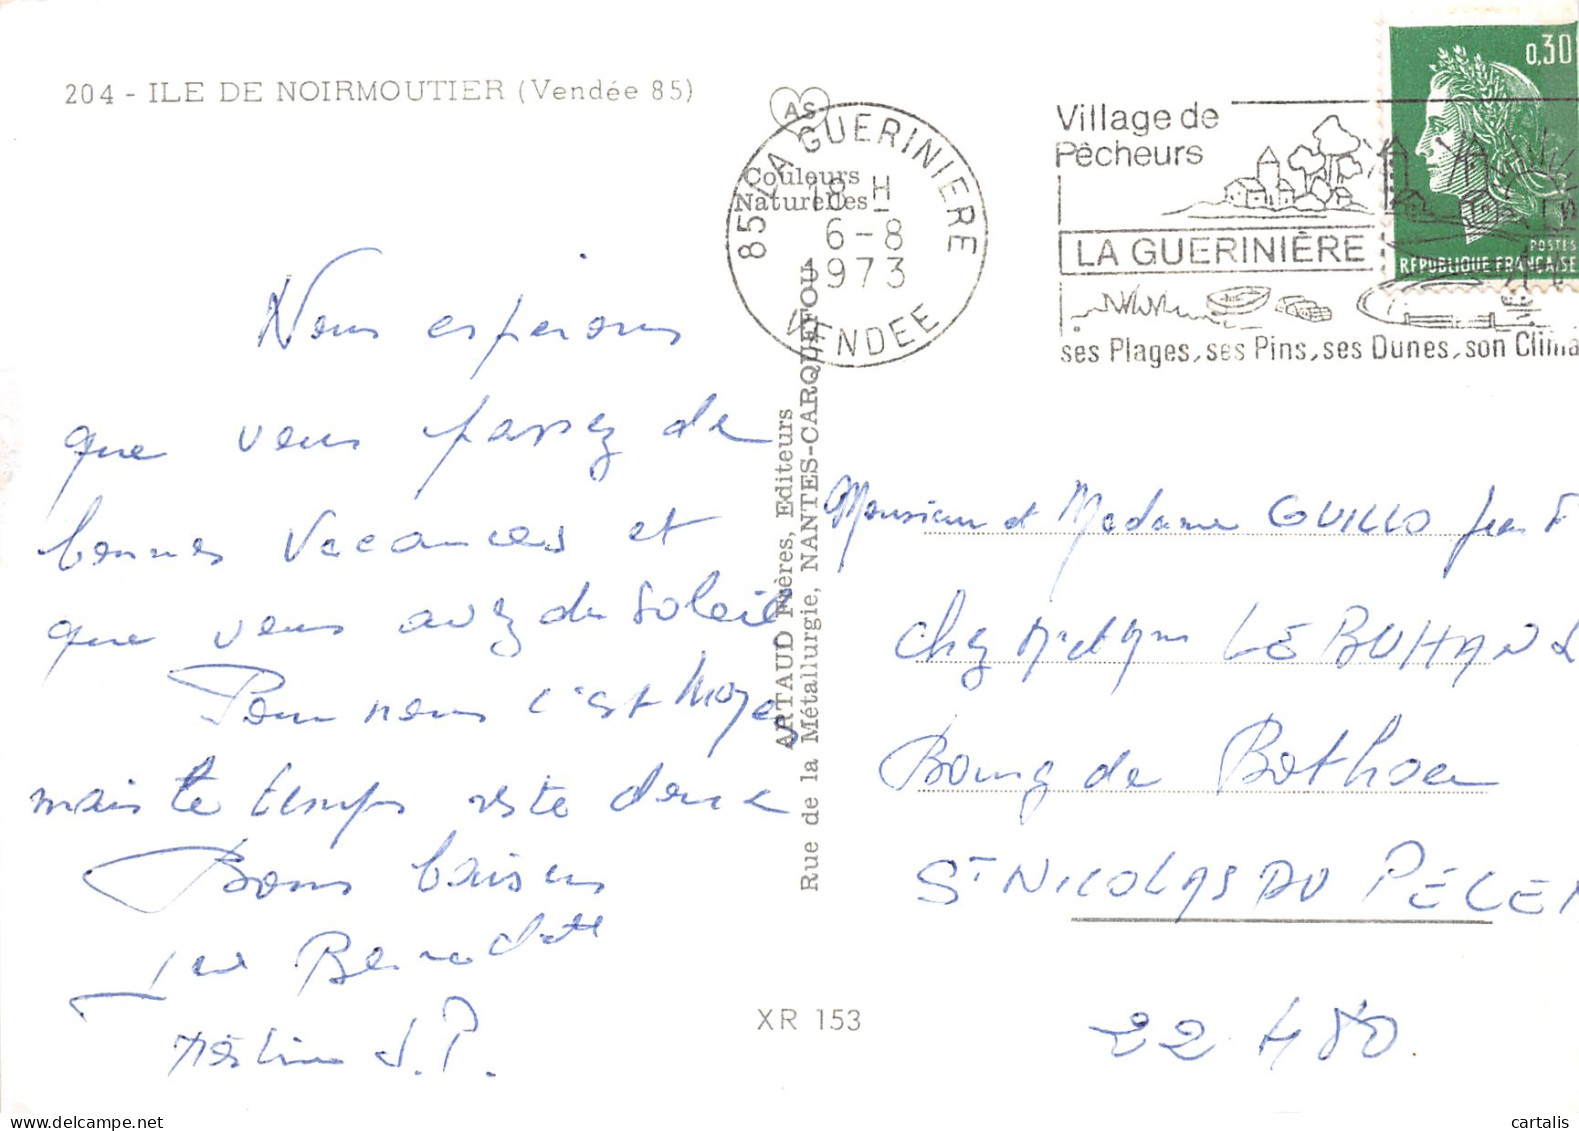 204 - ILE DE NOIRMOUTIER (Vendée 85)
AS
Couleurs
Naturelles
85 LA GUERINIERE
18 H
6-8
1973
VENDEE
Village de
Pêcheurs
LA GUERINIÈRE
ses Plages, ses Pins, ses Dunes, son Clima
0,30
POSTES
REPUBLIQUE FRANÇAISE
Nous esperons
que vous passez de
bonnes vacances et
que vous avez du soleil
Pour nous c'est moyen
mais le temps reste doux
Bons baisers
Bernadette
J.P.
ARTAUD Frères, Editeurs
Rue de la Métallurgie, NANTES-CARQUEFOU
Monsieur et Madame GUILLO Jean F
Chez Mr et Mme LE BUHAN
Bourg de Bothoa
ST NICOLAS DU PELEM
22 480
XR 153
cartalis